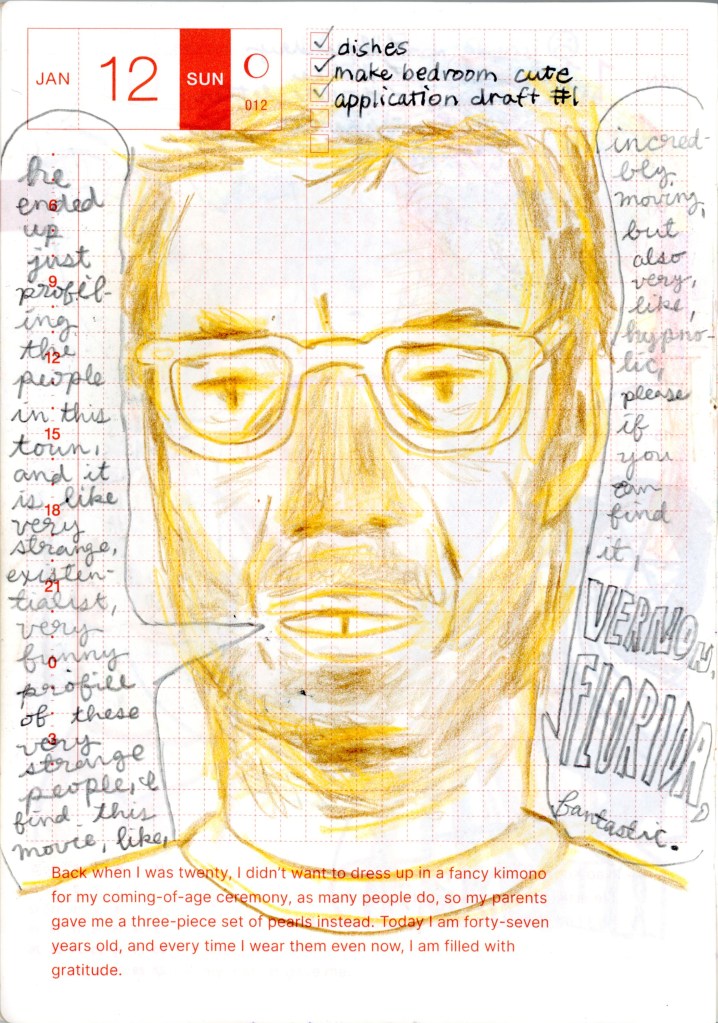 JAN 12 SUN
012
dishes
make bedroom cute
application draft #1
he
ended
up
just
profil-
ing
the
people
in this
town,
and it
is, like
very
strange,
existen-
tialist,
very
funny
profile
of these
very
strange
people, i
find this
movie, like,
incred-
bly
moving,
but
also
very,
like,
hypno-
tic,
please
if
you
can
find
it,
VERNON,
FLORIDA,
fantastic.
6
9
12
15
18
21
0
3
Back when I was twenty, I didn't want to dress up in a fancy kimono
for my coming-of-age ceremony, as many people do, so my parents
gave me a three-piece set of pearls instead. Today I am forty-seven
years old, and every time I wear them even now, I am filled with
gratitude.